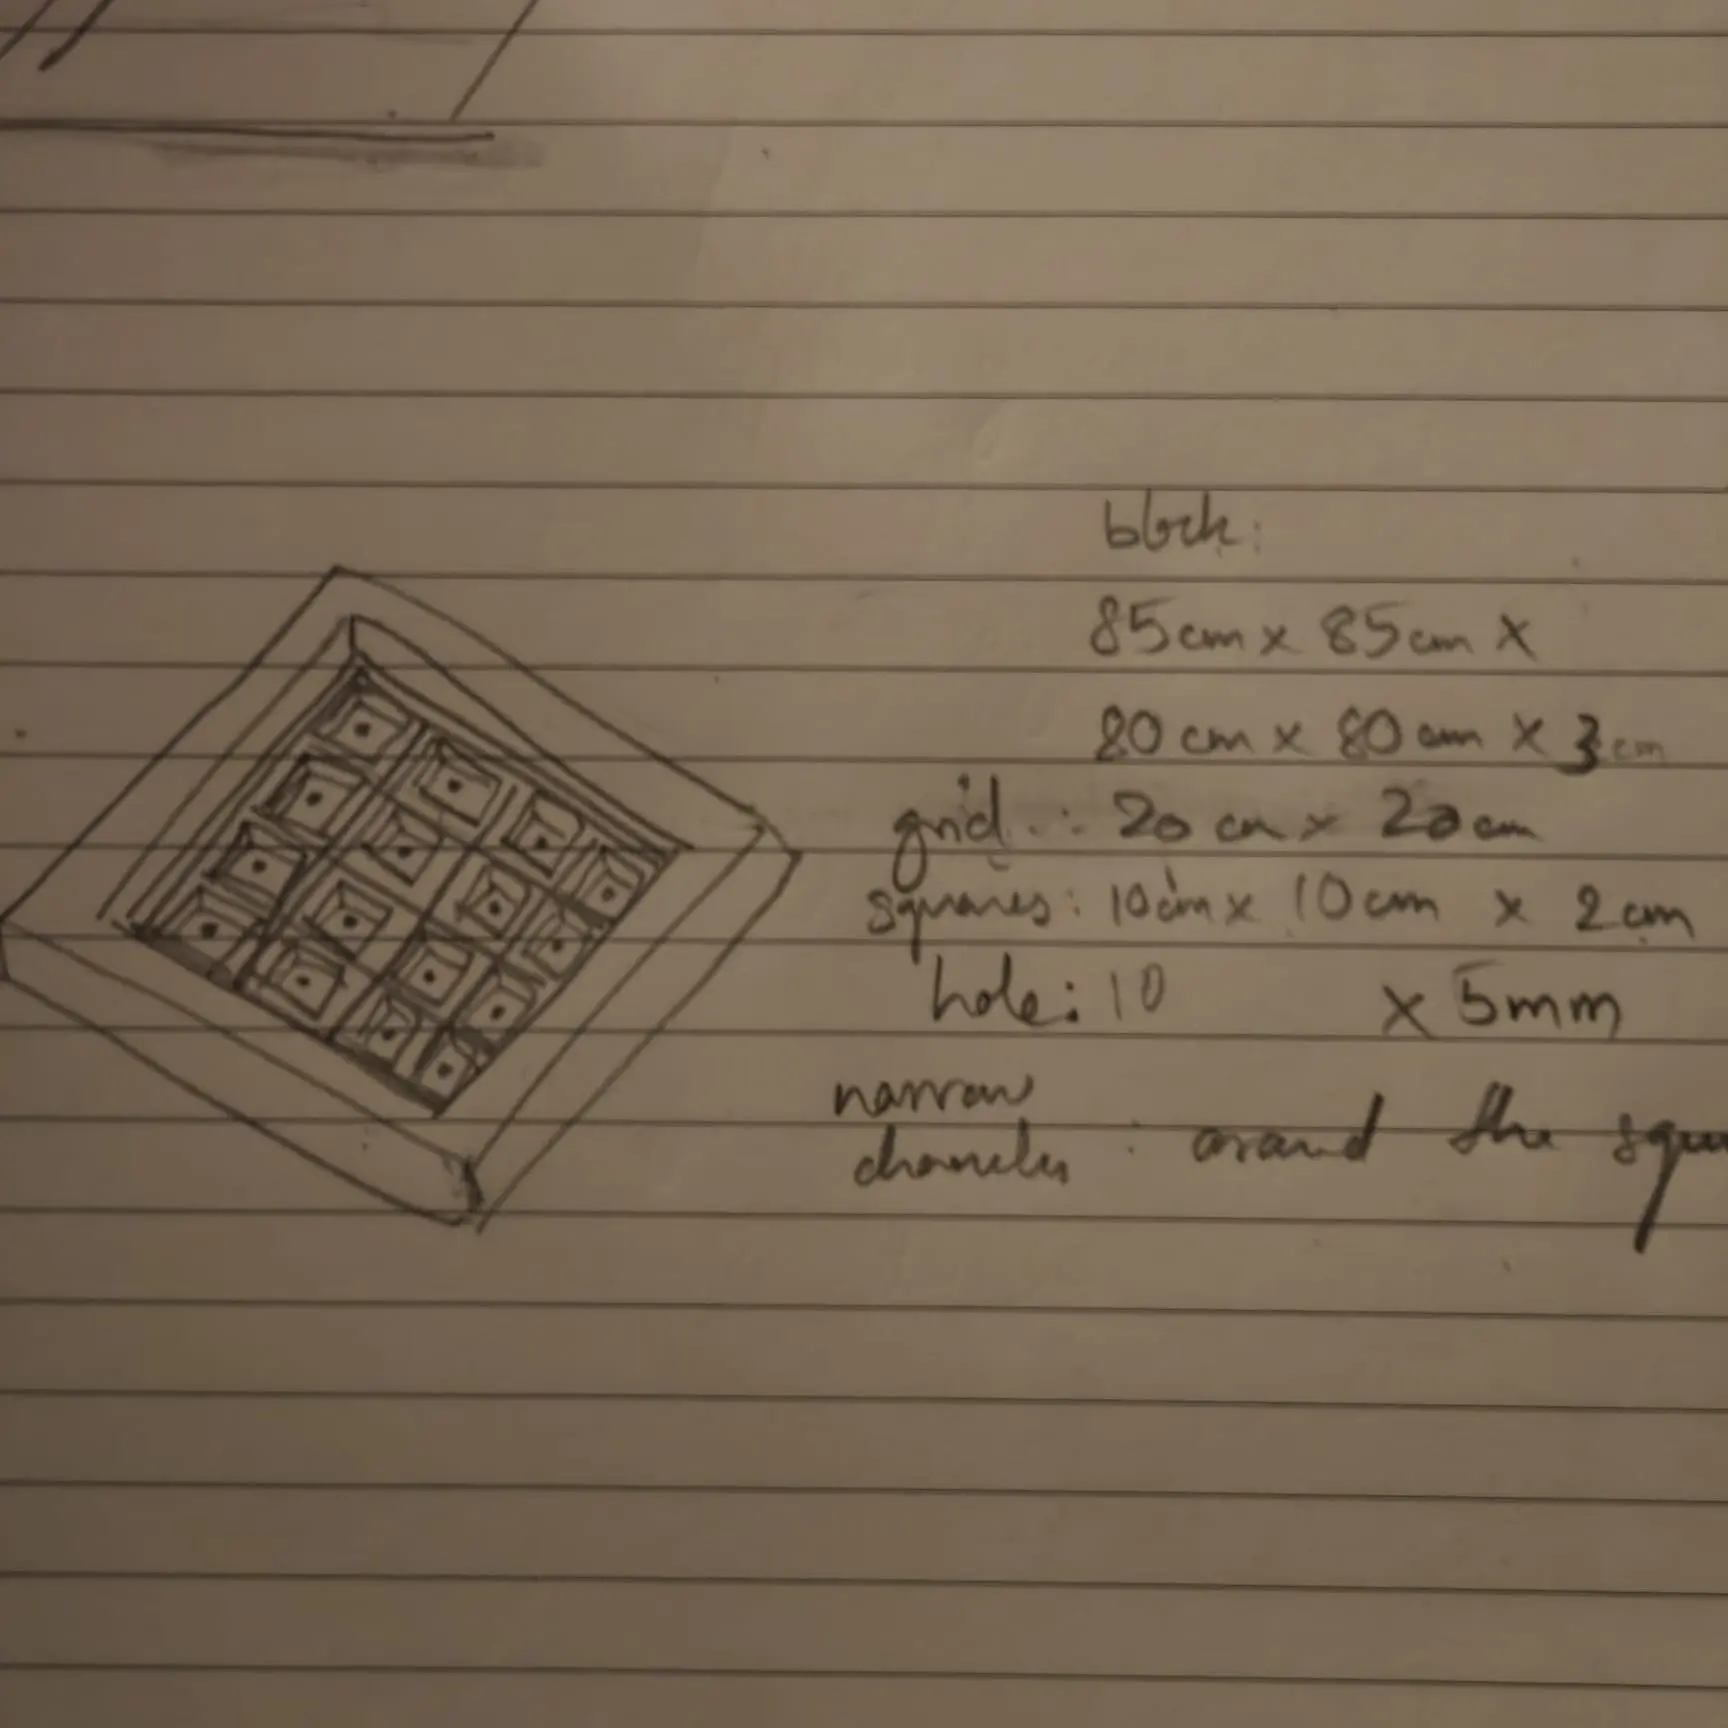 block:
85cm x 85cm x
80cm x 80cm x 3cm
grid : 20cm x 20cm
squares: 10cm x 10cm x 2cm
hole: 10 x 5mm
narrow
channels : around the